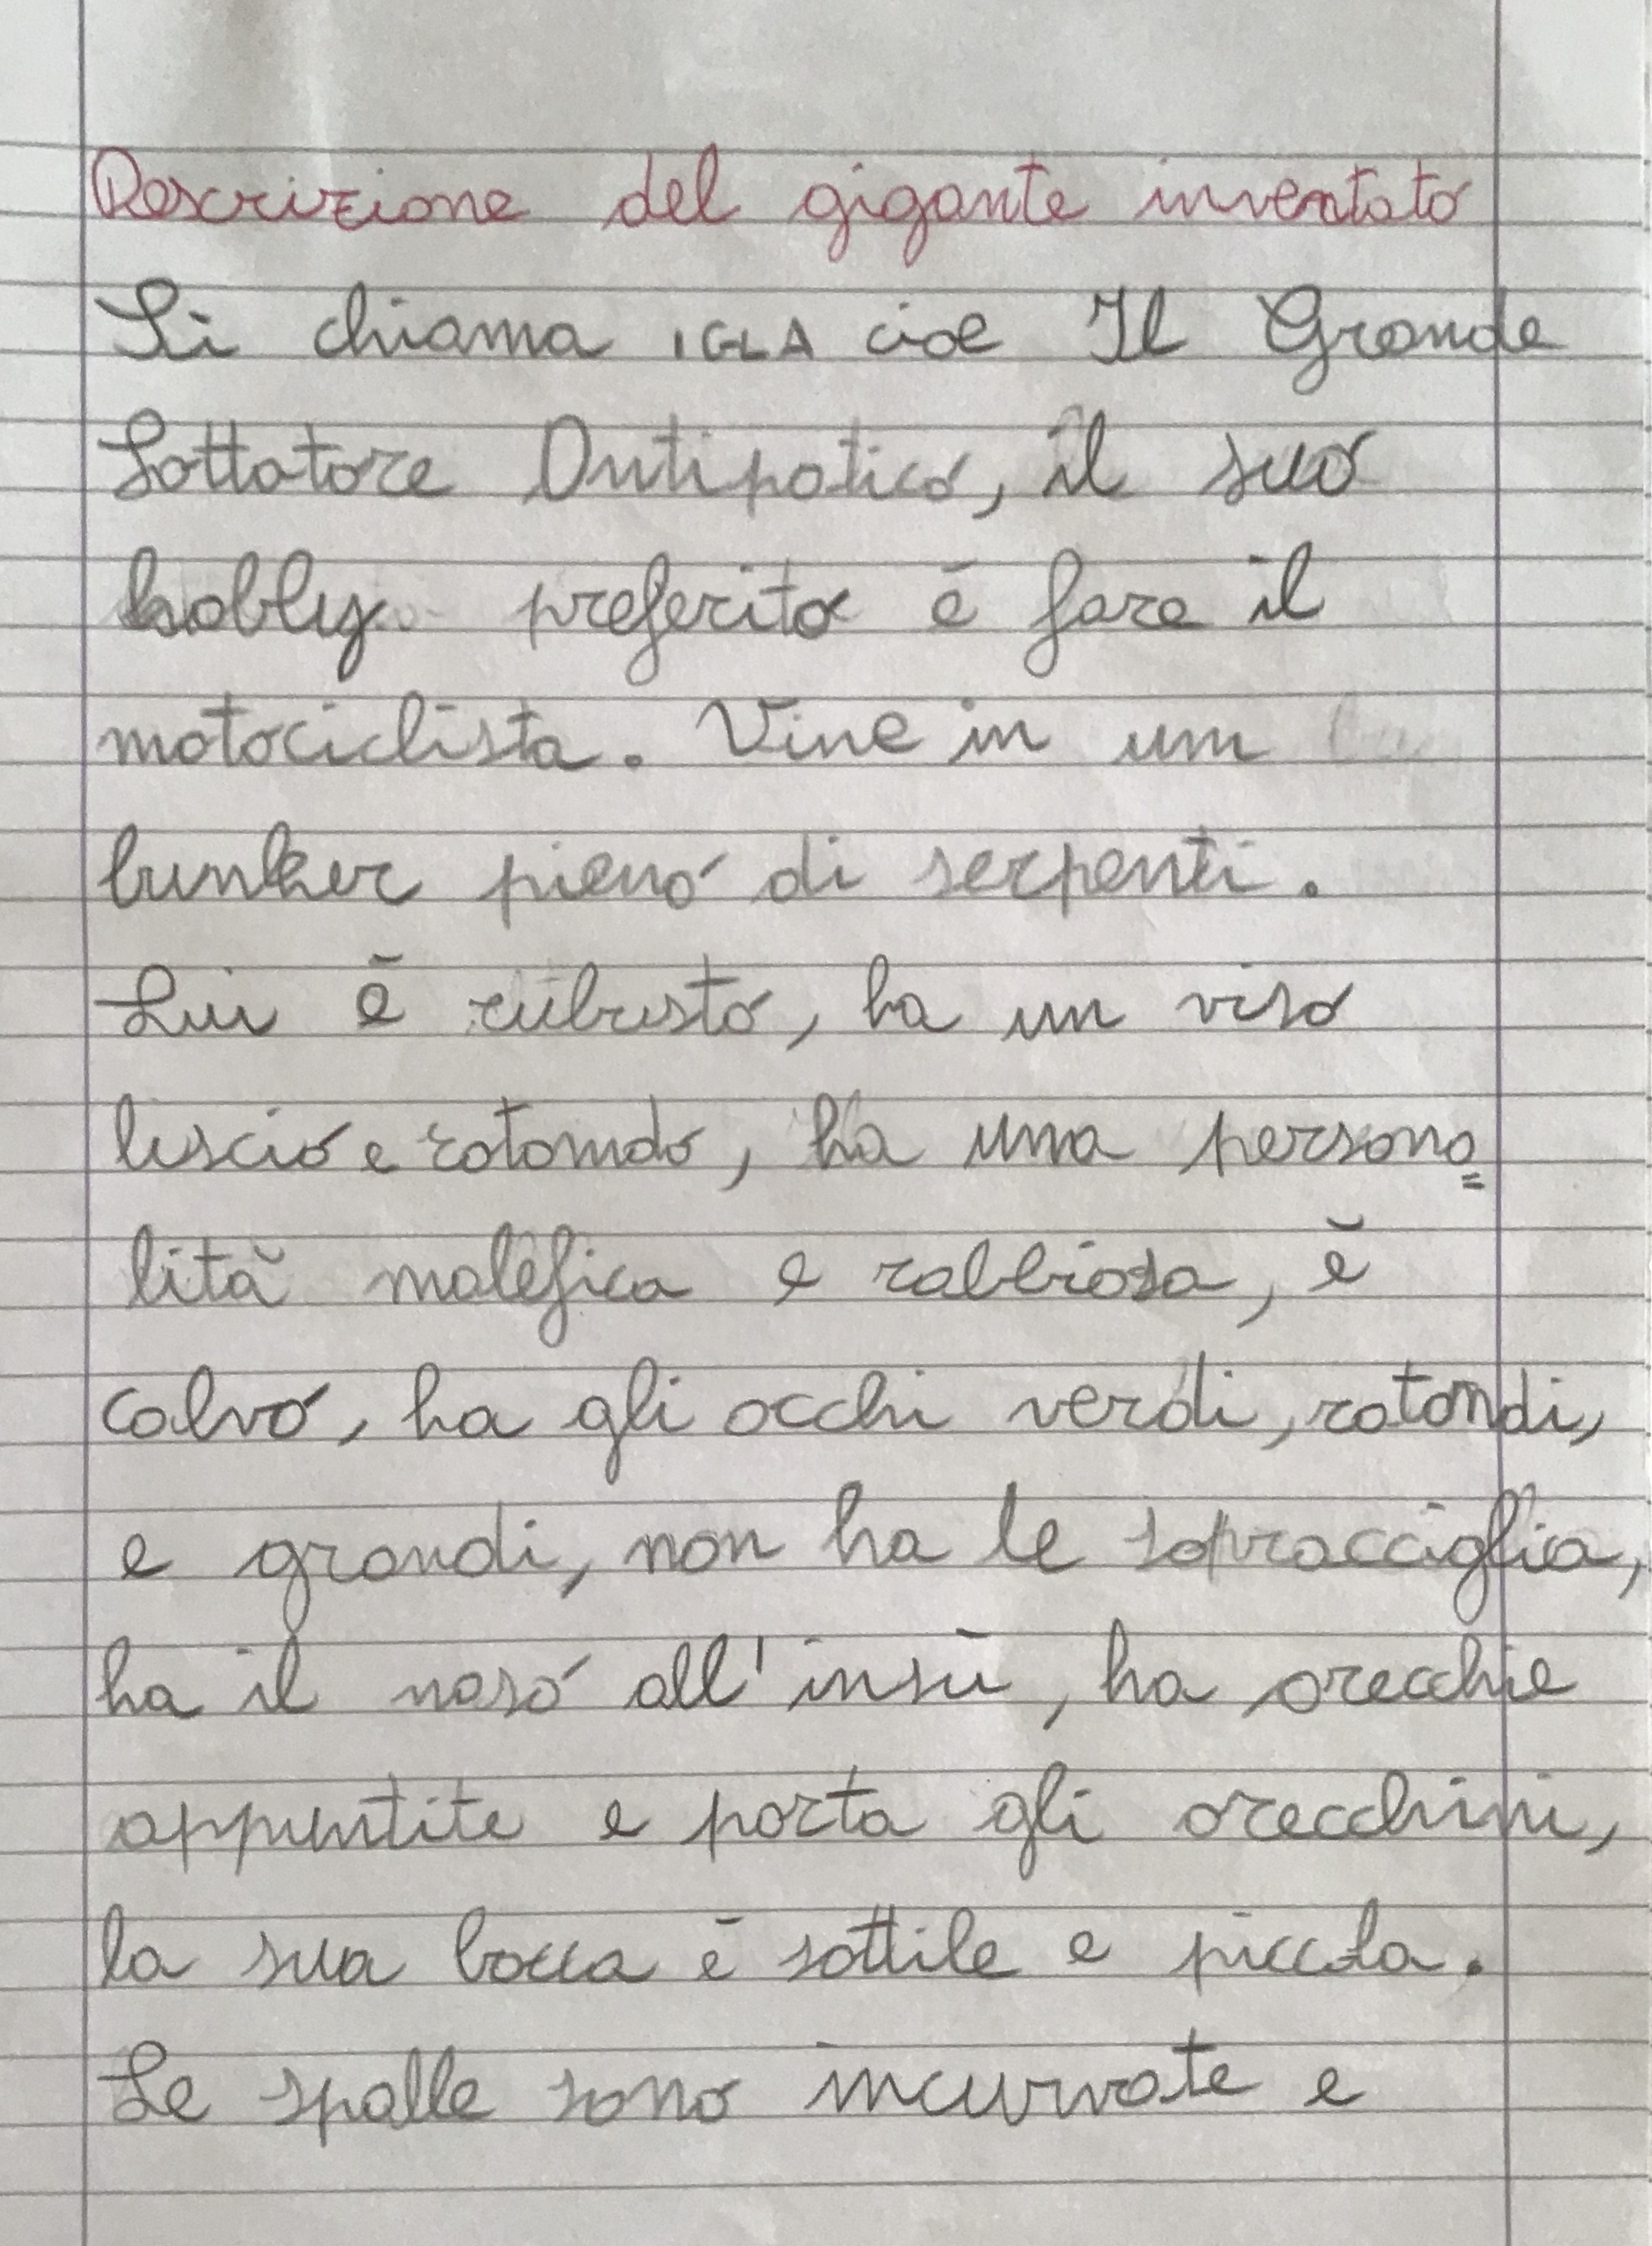 Descrizione del gigante inventato
Si chiama IGLA cioe Il Grande
Lottatore Antipatico, il suo
hobby preferito è fare il
motociclista. Vive in un
bunker pieno di serpenti.
Lui è rubusto, ha un viso
liscio e rotondo, ha una persona=
lità malefica e rabbiosa, è
calvo, ha gli occhi verdi, rotondi,
e grandi, non ha le sopracciglia,
ha il naso all'insù, ha orecchie
appuntite e porta gli orecchini,
la sua bocca è sottile e piccola.
Le spalle sono incurvate e